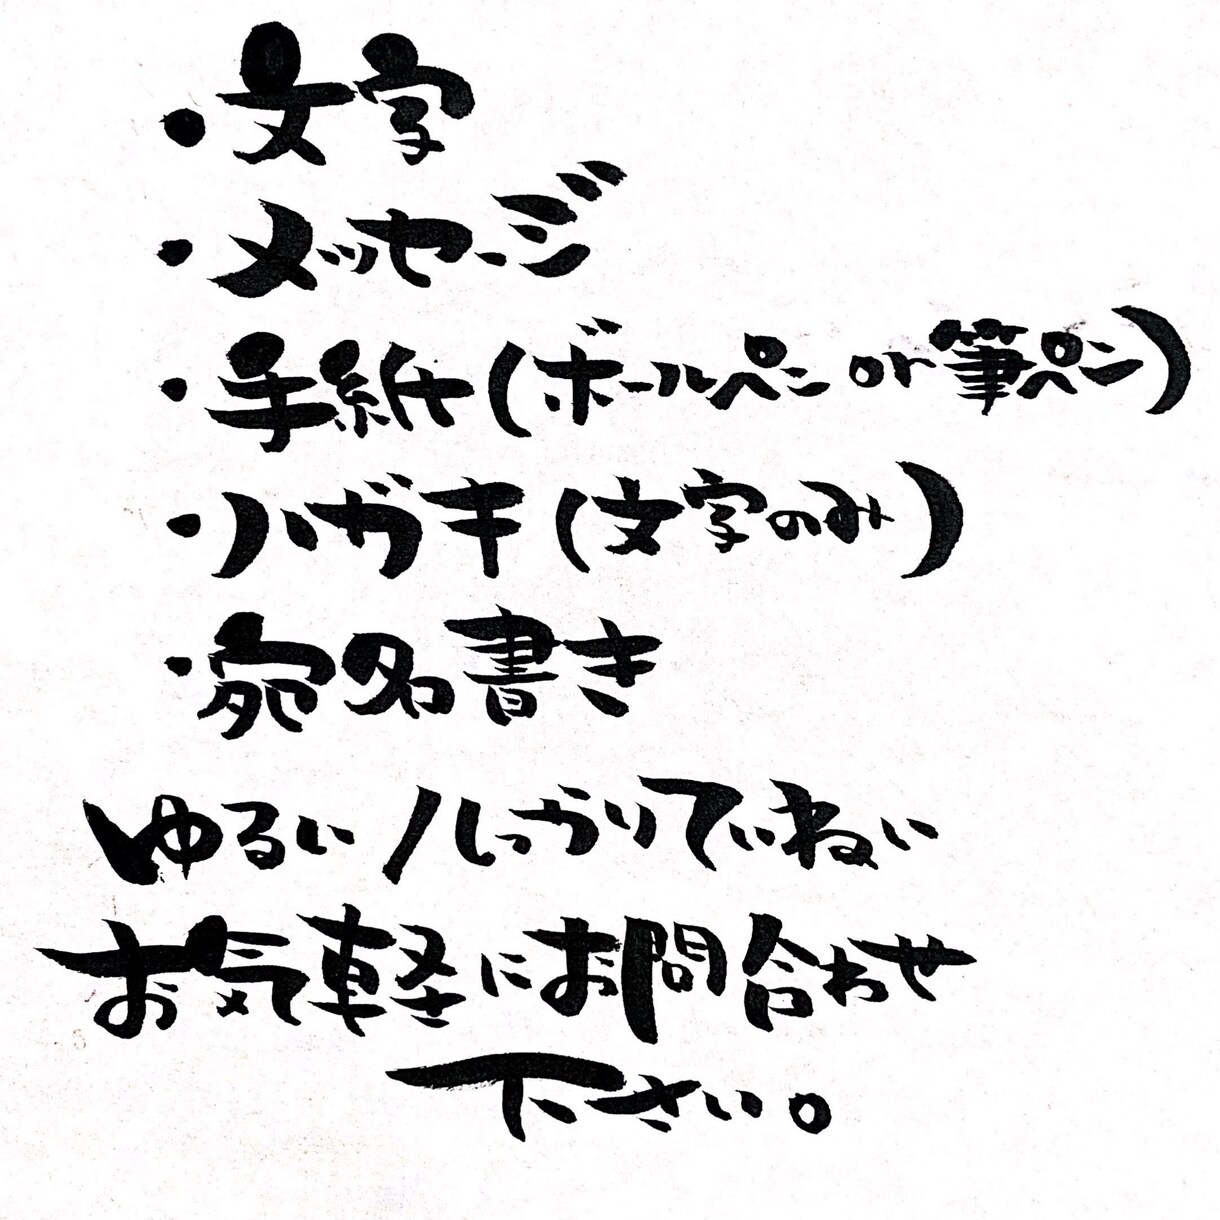 ・文字
・メッセージ
・手紙(ボールペン or 筆ペン)
・ハガキ(文字のみ)
・宛名書き
ゆるい/しっかりていねい
お気軽にお問合わせ
下さい。